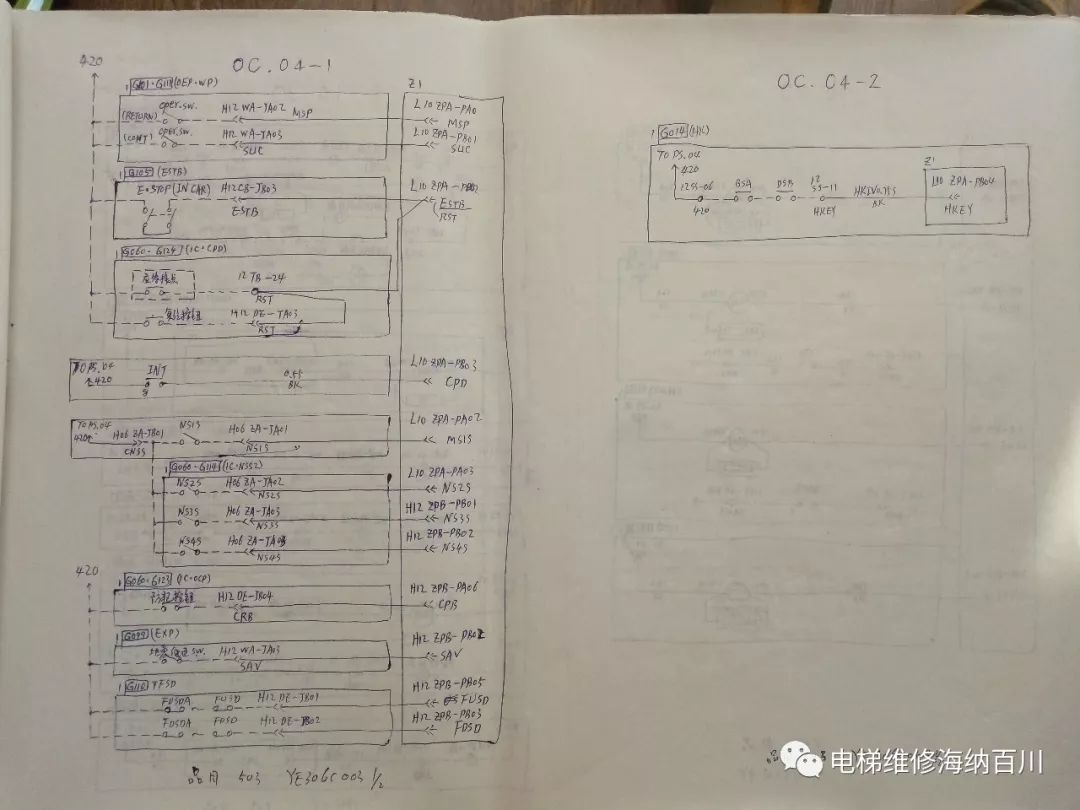 OC. 04-1
420
G101·G111 (OEP·WP)
Z1
(RETURN) oper.sw. H12 WA-JA02 MSP
L10 ZPA-PA0
MSP
(CONT) oper.sw. H12 WA-JA03 SUC
L10 ZPA-PB01
SUC
G105 (ESTB)
E·STOP (IN CAR) H12CB-JB03
ESTB
L10 ZPA-PB02
ESTB
RST
G060-G124 (IC·CPD)
12 TB-24
RST
H12 DE-JA03
RST
TO PS.04
420
INT
0.55
BK
L10 ZPA-PB03
CPD
TO PS.04
420
H06 ZA-JB01
CNSS
NS1S
H06 ZA-JA01
NS1S
L10 ZPA-PA02
MS1S
G060-G114 (IC·NSS2)
NS2S H06 ZA-JA02
NS2S
L10 ZPA-PA03
NS2S
NS3S H06 ZA-JA03
NS3S
H12 ZPB-PB01
NS3S
NS4S H06 ZA-JA0
NS4S
H12 ZPB-PB02
NS4S
420
G060-G123 (IC·OCP)
H12 DE-JB04
CRB
H12 ZPB-PA06
CPB
G099 (EXP)
SW. H12 WA-JA03
SAV
H12 ZPB-PB02
SAV
G110 FFSD
FUSDA FUSD H12 DE-JB01
H12 ZPB-PB05
FUSD
FDSDA FDSD H12 DE-JB02
H12 ZPB-PB03
FDSD
品目 503 YE306C003 1/2
OC. 04-2
G014 (HK)
TO PS.04
420
12SS-06
420
BSA
DSB
12
SS-11
HKEY
BK
Z1
L10 ZPA-PB04
HKEY
电梯维修海纳百川